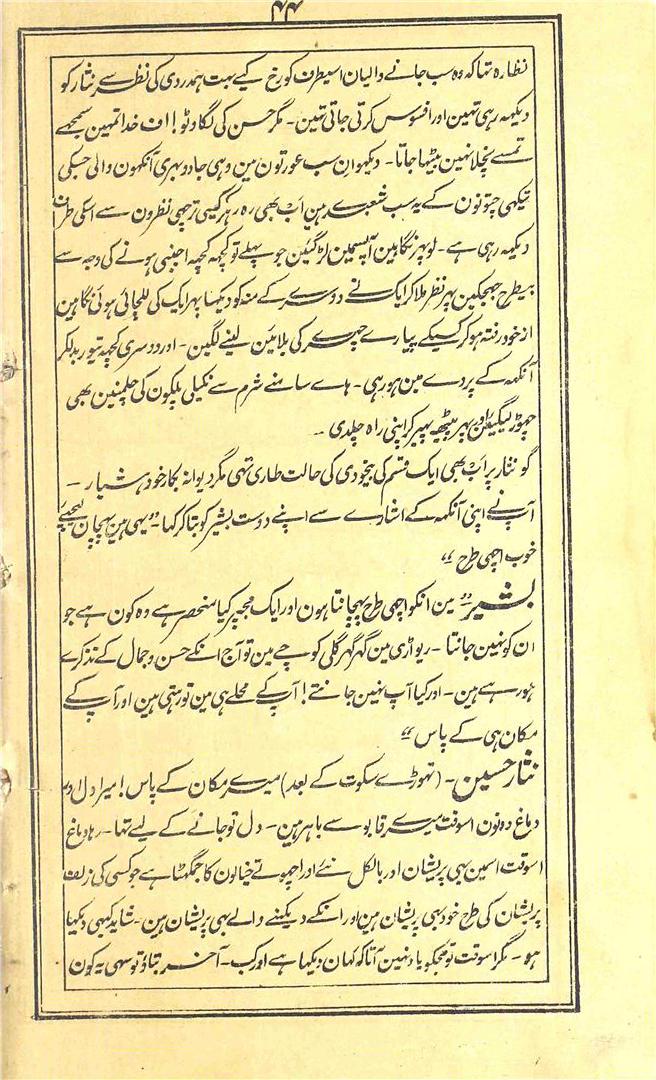 ۴۴
نظارہ تہا کہ وہ سب جانے والیان اسیطرف کو رخ کیے بہت ہمدردی کی نظر سے نثار کو
دیکہہ رہی تہین اور افسوس کرتی جاتی تہین۔ مگر حسن کی لگاوٹو! اف خدا تمہین سمجہے
تمسے نچلا نہین بیٹہا جاتا۔ دیکہو ان سب عورتون مین وہی جادو بہری آنکہون والی جسکی
تیکہی چتونون کے یہ سب شعبدے ہین اب بھی رہ رہکر کیسی ترچہی نظرون سے اسکی طرف
دیکہہ رہی ہے۔ لو پہر نگاہین آپسمین لڑگئین جو پہلے تو کچہہ کچہہ اجنبی ہونے کی وجہ سے
بیطرح جہجکین پہر نظر ملا کر ایک نے دوسرے کے منہ کو دیکہا پہر ایک کی للچائی ہوئی نگاہین
ازخود رفتہ ہو کر کسیکے پیارے چہرے کی بلائین لینے لگین۔ اور دوسری کچہہ تیور بدلکر
آنکہہ کے پردے مین ہو رہی۔ ہاے سامنے شرم سے نکیلی پلکون کی چلمنین بھی
چہوڑ لیگیئن اور پہر پیٹھہ پہیر کر اپنی راہ چلدی۔
گو نثار پر اب بھی ایک قسم کی بیخودی کی حالت طاری تہی مگر دیوانہ بکار خود ہشیار۔
آپ نے اپنی آنکہہ کے اشارے سے اپنے دوست بشیر کو بتا کر کہا۔ ”یہی ہین پہچان لیجیے
خوب اچہی طرح“
بشیر ”مین انکو اچہی طرح پہچانتا ہون اور ایک مجہپر کیا منحصر ہے وہ کون ہے جو
ان کو نہین جانتا۔ ریواڑی مین گہر گہر گلی کوچے مین تو آج انکے حسن و جمال کے تذکرے
ہو رہے ہین۔ اور کیا آپ نہین جانتے! آپ کے محلے ہی مین تو رہتی ہین اور آپ کے
مکان ہی کے پاس“
نثار حسین۔ (تہوڑے سکوت کے بعد) میرے مکان کے پاس! میرا دل اور
دماغ دونون اسوقت میرے قابو سے باہر ہین۔ دل تو جانے کے لیے تہا۔ رہا دماغ
اسوقت اسمین بہی پریشان اور بالکل نئے اور اچہوتے خیالون کا جمگہٹا ہے جو کسی کی زلف
پریشان کی طرح خود بہی پریشان ہین اور انکے دیکہنے والے بہی پریشان ہین۔ شاید کہیں دیکہا
ہو۔ مگر اسوقت تو مجکو یاد نہین آتا کہ کہان دیکہا ہے اور کب۔ آخر بتاؤ تو سہی یہ کون